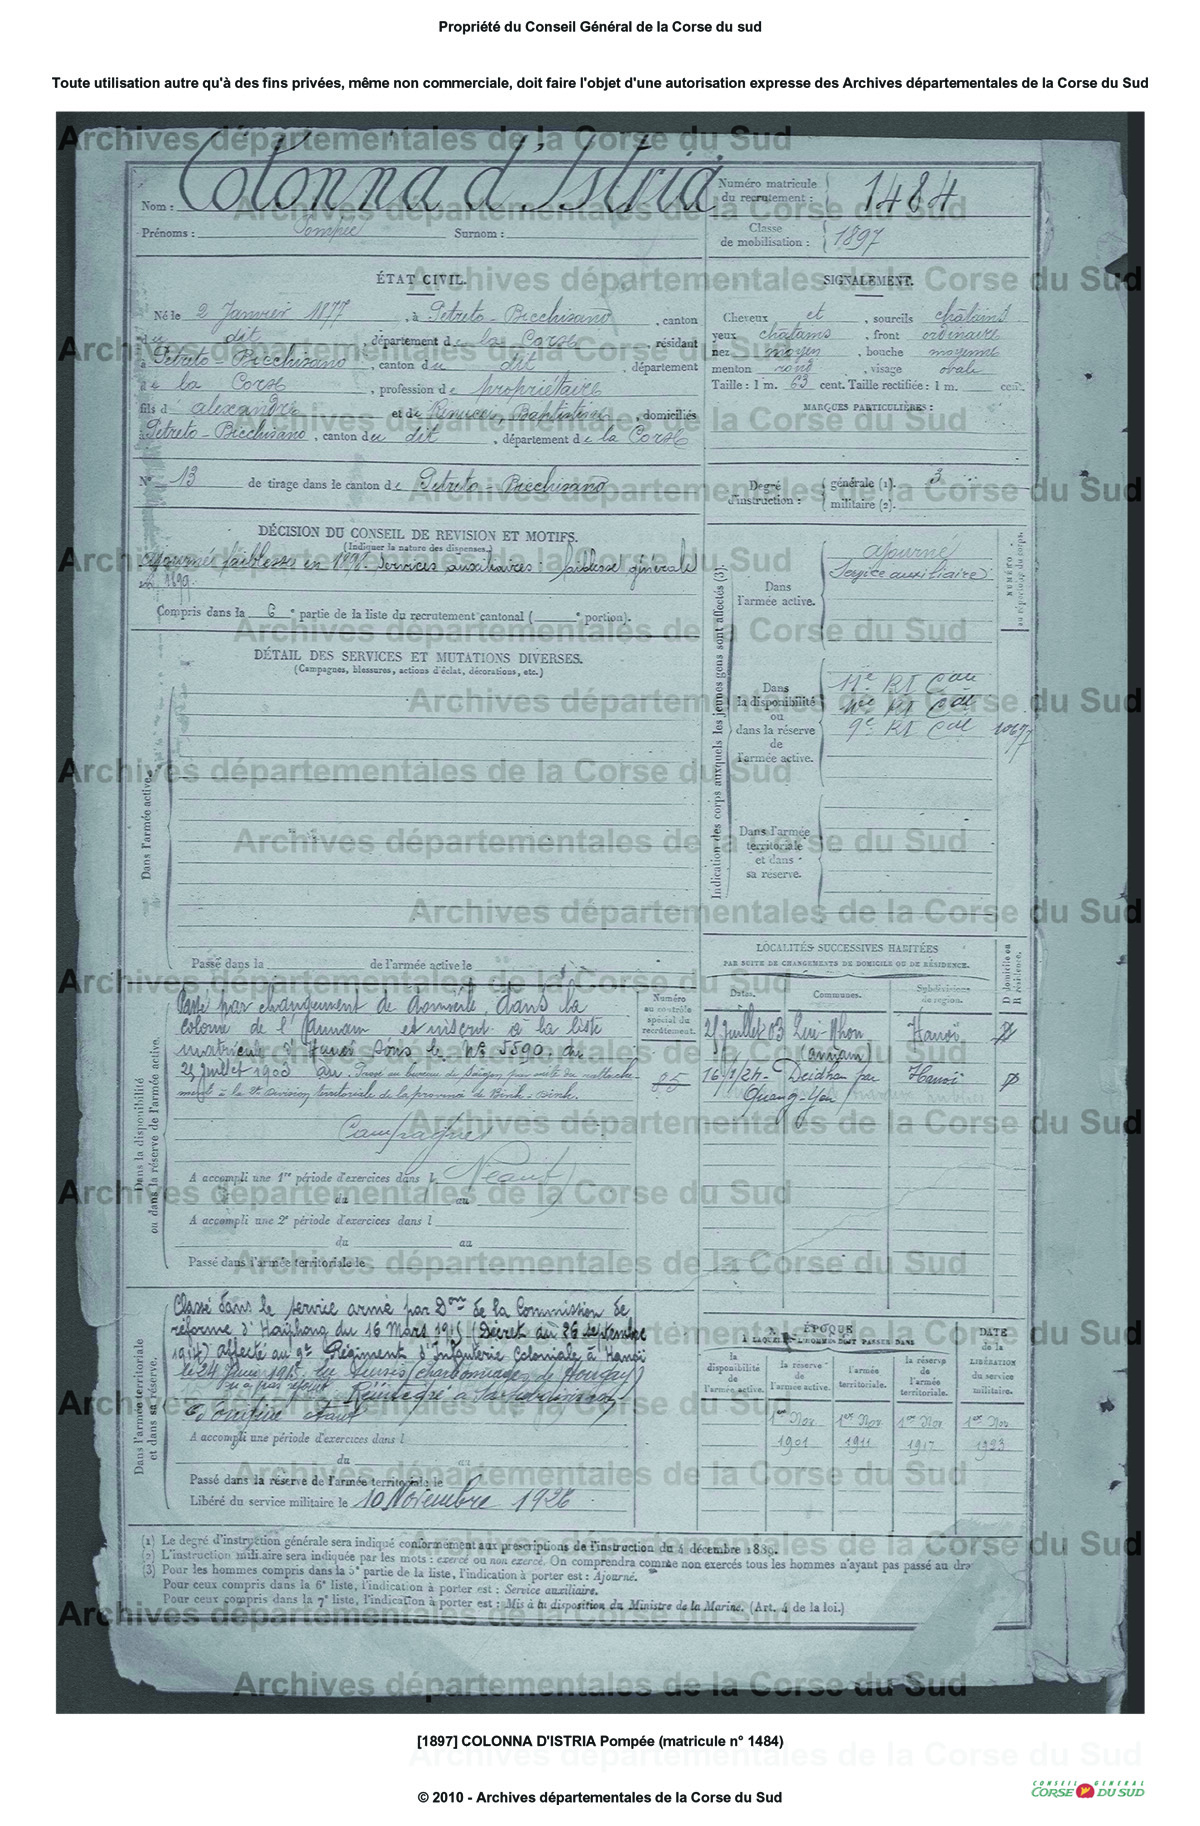 Propriété du Conseil Général de la Corse du sud
Toute utilisation autre qu'à des fins privées, même non commerciale, doit faire l'objet d'une autorisation expresse des Archives départementales de la Corse du Sud
Nom : Colonna d'Istria
Prénoms : Pompée Surnom :
Numéro matricule du recrutement : 1484
Classe de mobilisation : 1897
ÉTAT CIVIL.
Né le 2 Janvier 1877, à Petreto-Bicchisano, canton
du dit, département de la Corse, résidant
à Petreto-Bicchisano, canton du dit, département
de la Corse, profession de propriétaire
fils d'alexandre et de Baptistine, domiciliés
Petreto-Bicchisano, canton du dit, département de la Corse
N° 13 de tirage dans le canton de Petreto-Bicchisano
SIGNALEMENT.
Cheveux et, sourcils châtains
yeux châtains, front ordinaire
nez moyen, bouche moyenne
menton rond, visage ovale
Taille : 1 m. 63 cent. Taille rectifiée : 1 m. cent.
MARQUES PARTICULIÈRES :
Degré d'instruction : générale (1). 3
militaire (2).
DÉCISION DU CONSEIL DE REVISION ET MOTIFS.
(Indiquer la nature des dispenses.)
ajourné faiblesse en 1898. Services auxiliaires : faiblesse générale
1899.
Compris dans la 6e partie de la liste du recrutement cantonal ( e portion).
DÉTAIL DES SERVICES ET MUTATIONS DIVERSES.
(Campagnes, blessures, actions d'éclat, décorations, etc.)
Dans l'armée active.
Passé dans la de l'armée active le
Indication des corps auxquels les jeunes gens sont affectés (3).
NUMÉRO au répertoire du corps.
Dans l'armée active.
ajourné
Service auxiliaire
Dans la disponibilité ou dans la réserve de l'armée active.
11e RI Cale
RI Cale
9e RI Cale 10677
Dans l'armée territoriale et dans sa réserve.
LOCALITÉS SUCCESSIVES HABITÉES
PAR SUITE DE CHANGEMENTS DE DOMICILE OU DE RÉSIDENCE.
Dates. Communes. Subdivisions de région. D domicile ou R résidence.
25 juillet 03 Qui-Nhon (annam) Hanoï
16/1/24 Deidhan par Quang-Yen Hanoï
Dans la disponibilité ou dans la réserve de l'armée active.
Numéro au contrôle spécial du recrutement.
Passé par changement de domicile dans la
colonie de l'Annam et inscrit à la liste
matricule d'Hanoï sous le N° 5590 du
25 juillet 1903 au. Passé au bureau de Saïgon par suite du rattache-
ment à la 2e Division territoriale de la province de Binh-Dinh.
Campagnes
Néant
A accompli une 1re période d'exercices dans l
du au
A accompli une 2e période d'exercices dans l
du au
Passé dans l'armée territoriale le
Dans l'armée territoriale et dans sa réserve.
Classé dans le service armé par Don de la Commission de
réforme d'Haïphong du 16 Mars 1915 (Décret du 26 septembre
1914) affecté au 9e Régiment d'Infanterie Coloniale à Hanoï
le 24 Juin 1915, en sursis (charbonnages de Hongay)
Réintégré
A accompli une période d'exercices dans l
du au
Passé dans la réserve de l'armée territoriale le
Libéré du service militaire le 10 Novembre 1926
ÉPOQUE
À LAQUELLE L'HOMME DOIT PASSER DANS
DATE de la LIBÉRATION du service militaire.
la disponibilité de l'armée active. la réserve de l'armée active. l'armée territoriale. la réserve de l'armée territoriale.
1er Nov 1er Nov 1er Nov 1er Nov
1901 1911 1917 1923
(1) Le degré d'instruction générale sera indiqué conformément aux prescriptions de l'instruction du 4 décembre 1889.
(2) L'instruction militaire sera indiquée par les mots : exercé ou non exercé. On comprendra comme non exercés tous les hommes n'ayant pas passé au dra
(3) Pour les hommes compris dans la 5e partie de la liste, l'indication à porter est : Ajourné.
Pour ceux compris dans la 6e liste, l'indication à porter est : Service auxiliaire.
Pour ceux compris dans la 7e liste, l'indication à porter est : Mis à la disposition du Ministre de la Marine. (Art. 4 de la loi.)
Archives départementales de la Corse du Sud
[1897] COLONNA D'ISTRIA Pompée (matricule n° 1484)
CONSEIL GÉNÉRAL
CORSE DU SUD
© 2010 - Archives départementales de la Corse du Sud